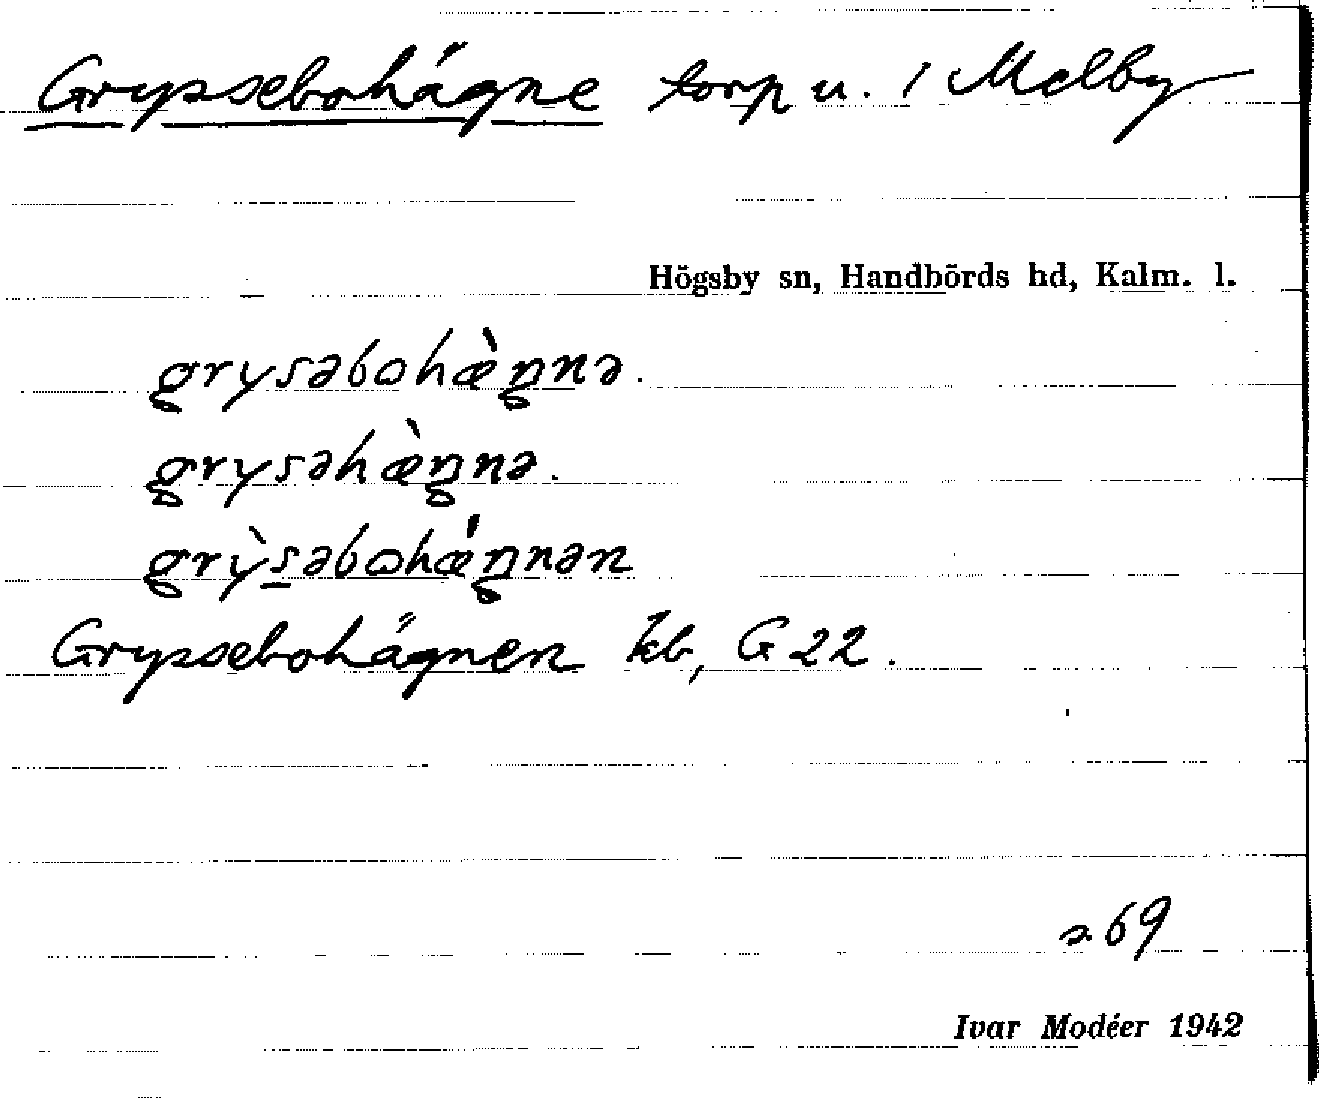 Gryssebohägne torp u. 1 Melby
Högsby sn, Handbörds hd, Kalm. l.
grysəbohæ̀ŋnə.
grysəhæ̀ŋnə.
grỳs̲əbohǽŋnən
Gryssebohägnen kb, G 22.
s 69
Ivar Modéer 1942